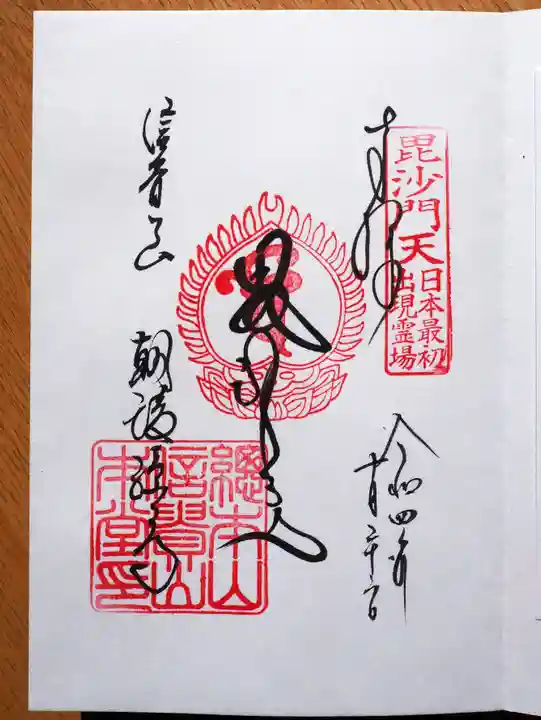 奉拝
毘沙門天
日本最初
出現霊場
令和四年
十月二十二日
毘沙門天王
信貴山
朝護孫子寺
總本山
信貴山
本堂印